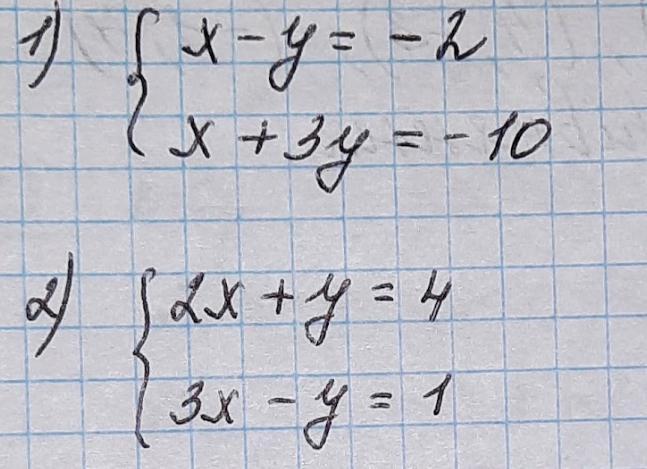 1) { x - y = -2
x + 3y = -10
2) { 2x + y = 4
3x - y = 1